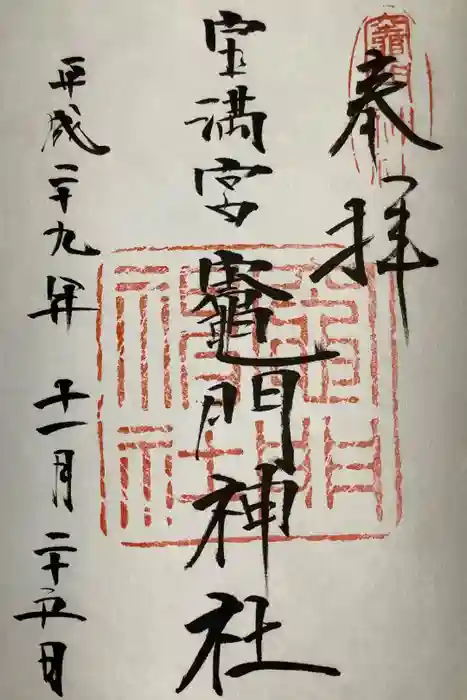 奉拝
宝満宮竈門神社
平成二十九年十一月二十五日